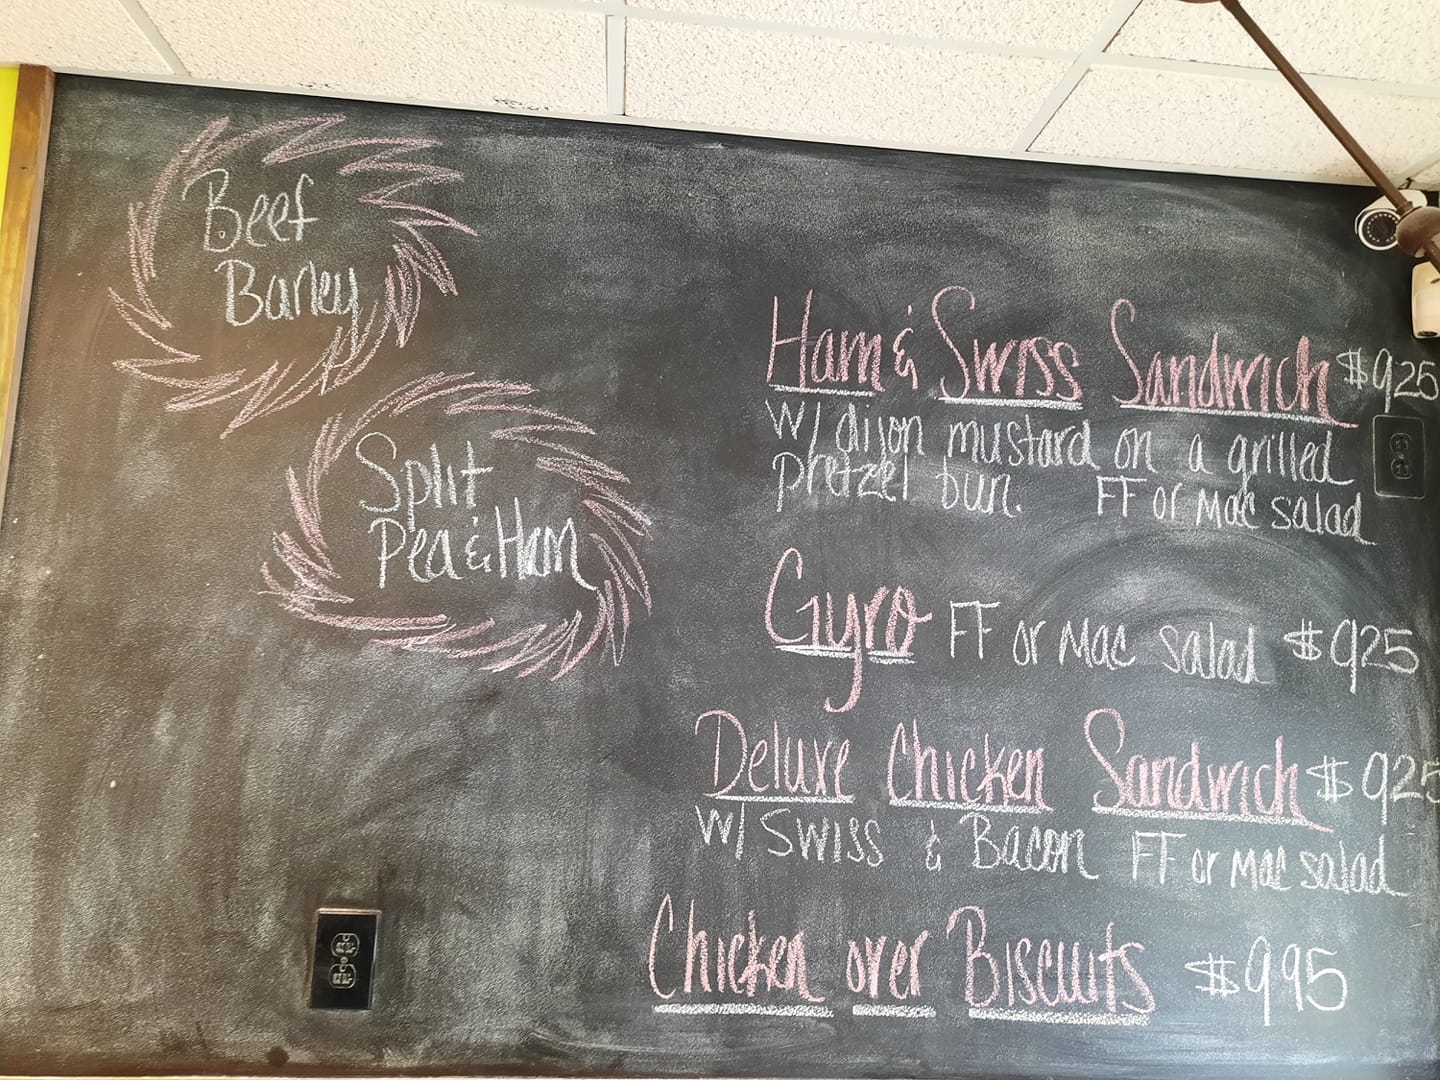 Beef
Barley
Split
Pea & Ham
Ham & Swiss Sandwich $925
w/ dijon mustard on a grilled
pretzel bun. FF or Mac salad
Gyro FF or Mac salad $925
Deluxe Chicken Sandwich $925
w/ Swiss & Bacon FF or Mac salad
Chicken over Biscuits $995